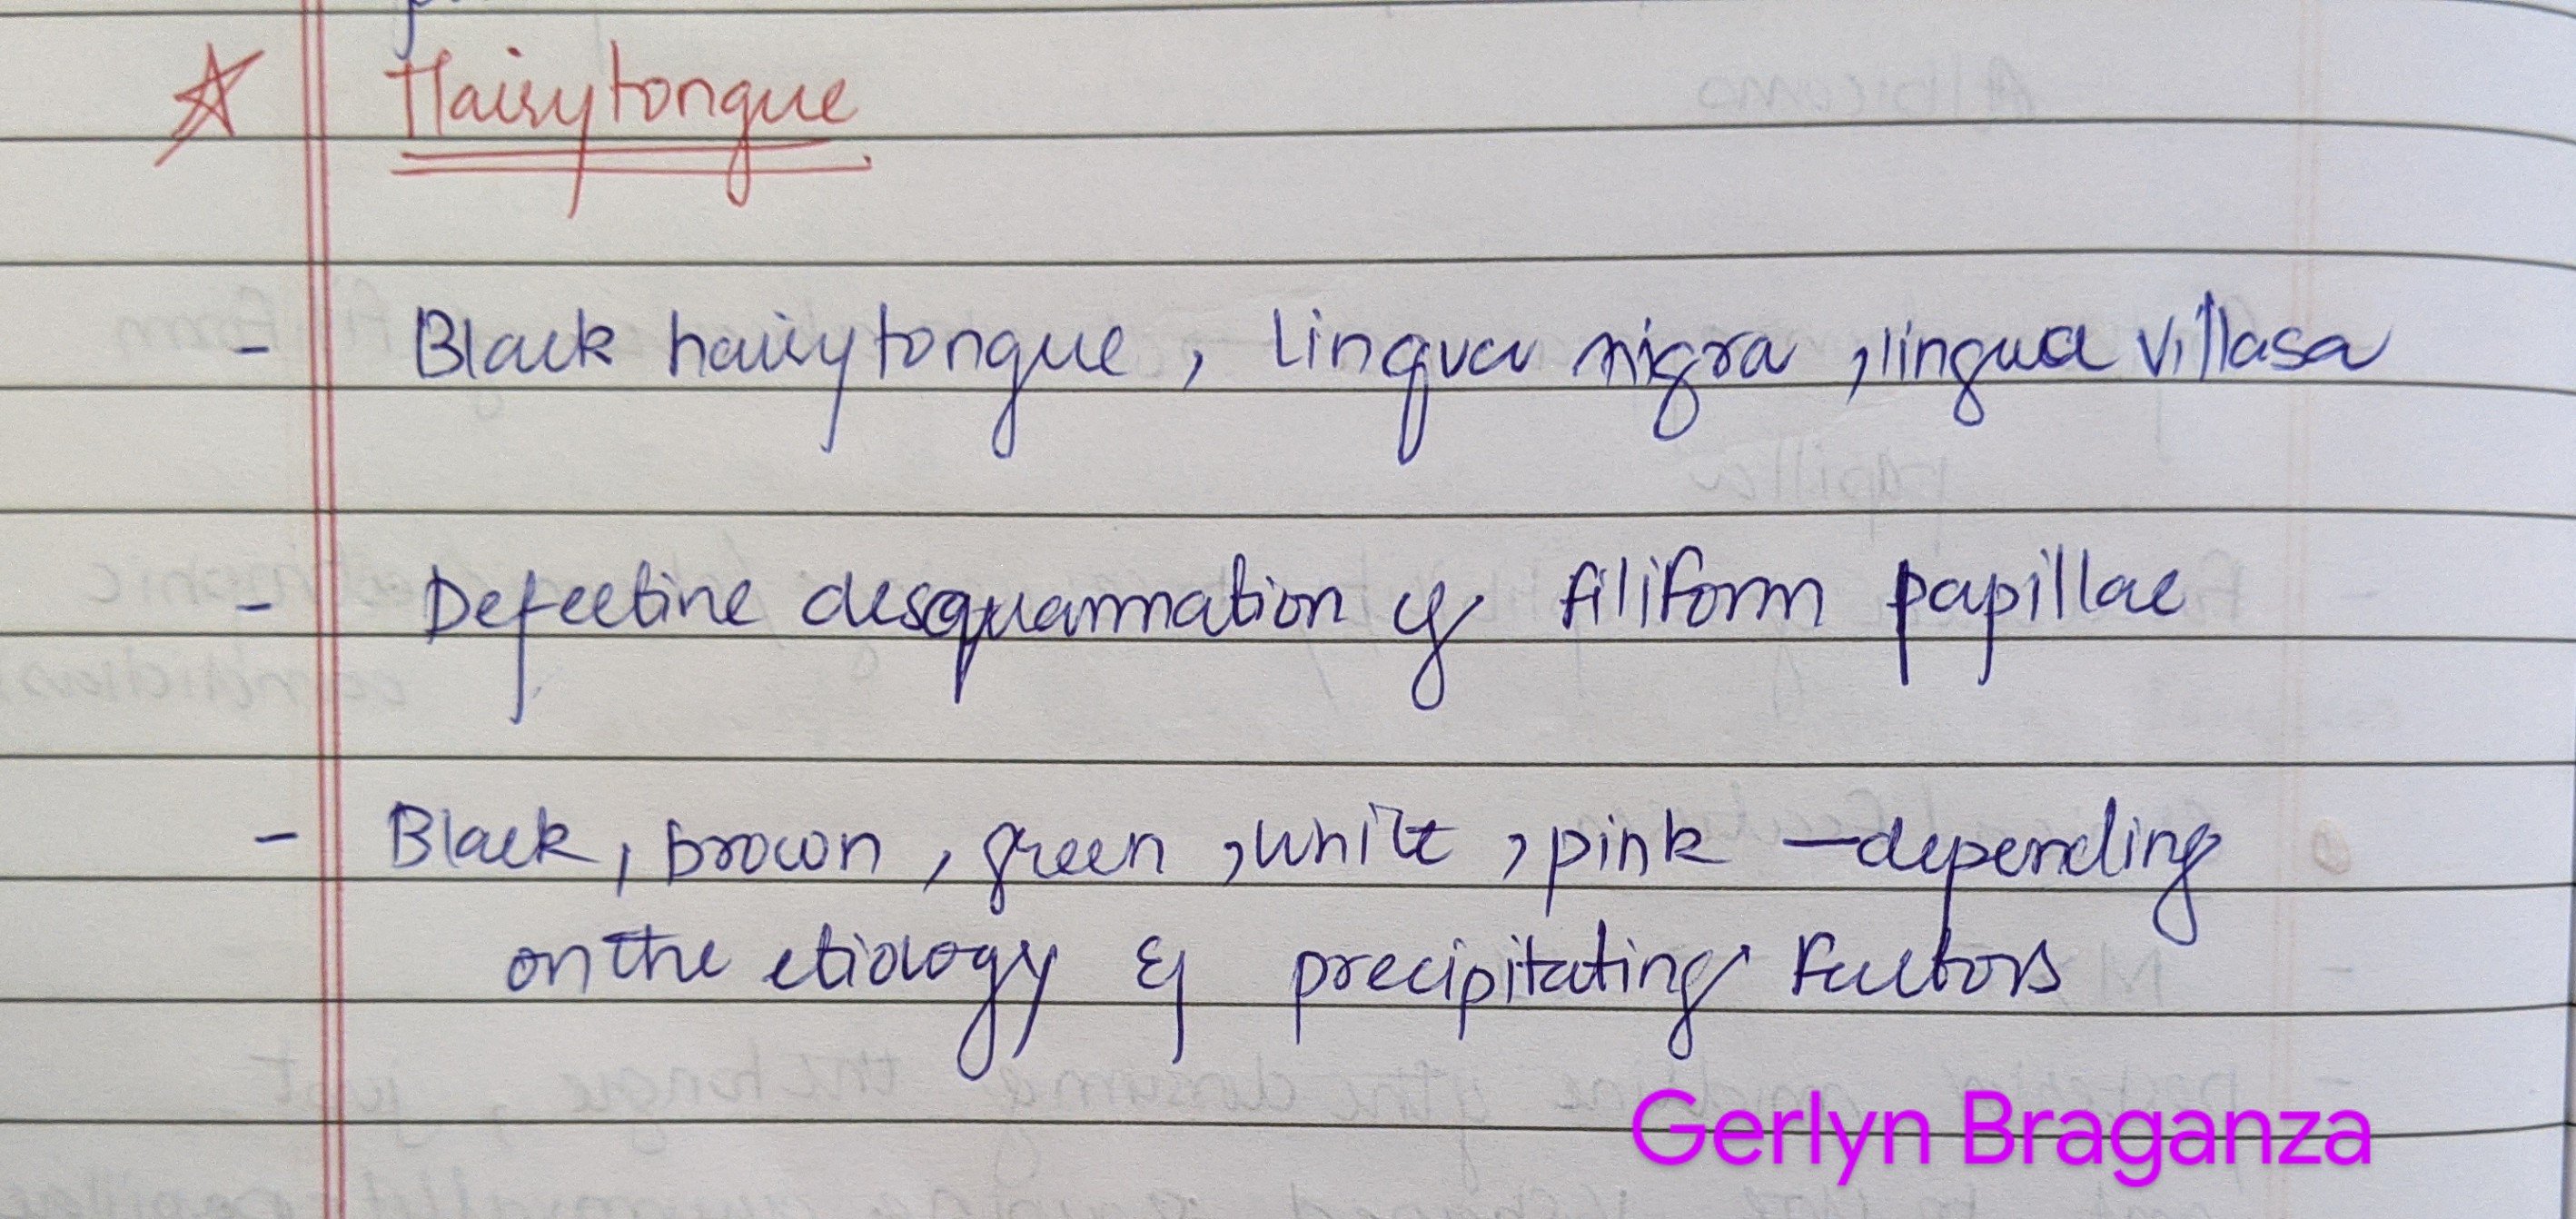 Hairy tongue
- Black hairy tongue, lingua nigra, lingua villasa
- Defective desquamation of filiform papillae
- Black, brown, green, white, pink - depending
on the etiology & precipitating factors
Gerlyn Braganza